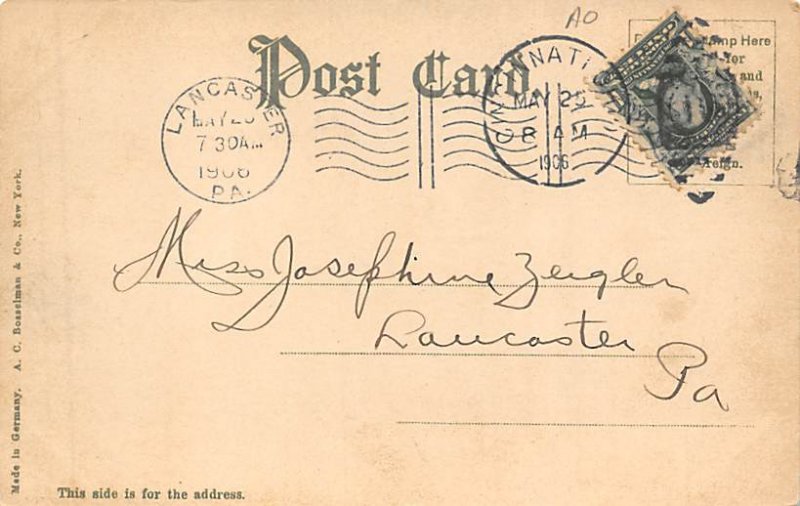 AO
Post Card
LANCASTER
MAY 26
7 30 AM
1906
PA.
CINCINNATI
MAY 25
8 AM
1906
mp Here
for
and
reign.
Miss Josephine Zeigler
Lancaster
Pa
Made in Germany. A. C. Bosselman & Co., New York.
This side is for the address.